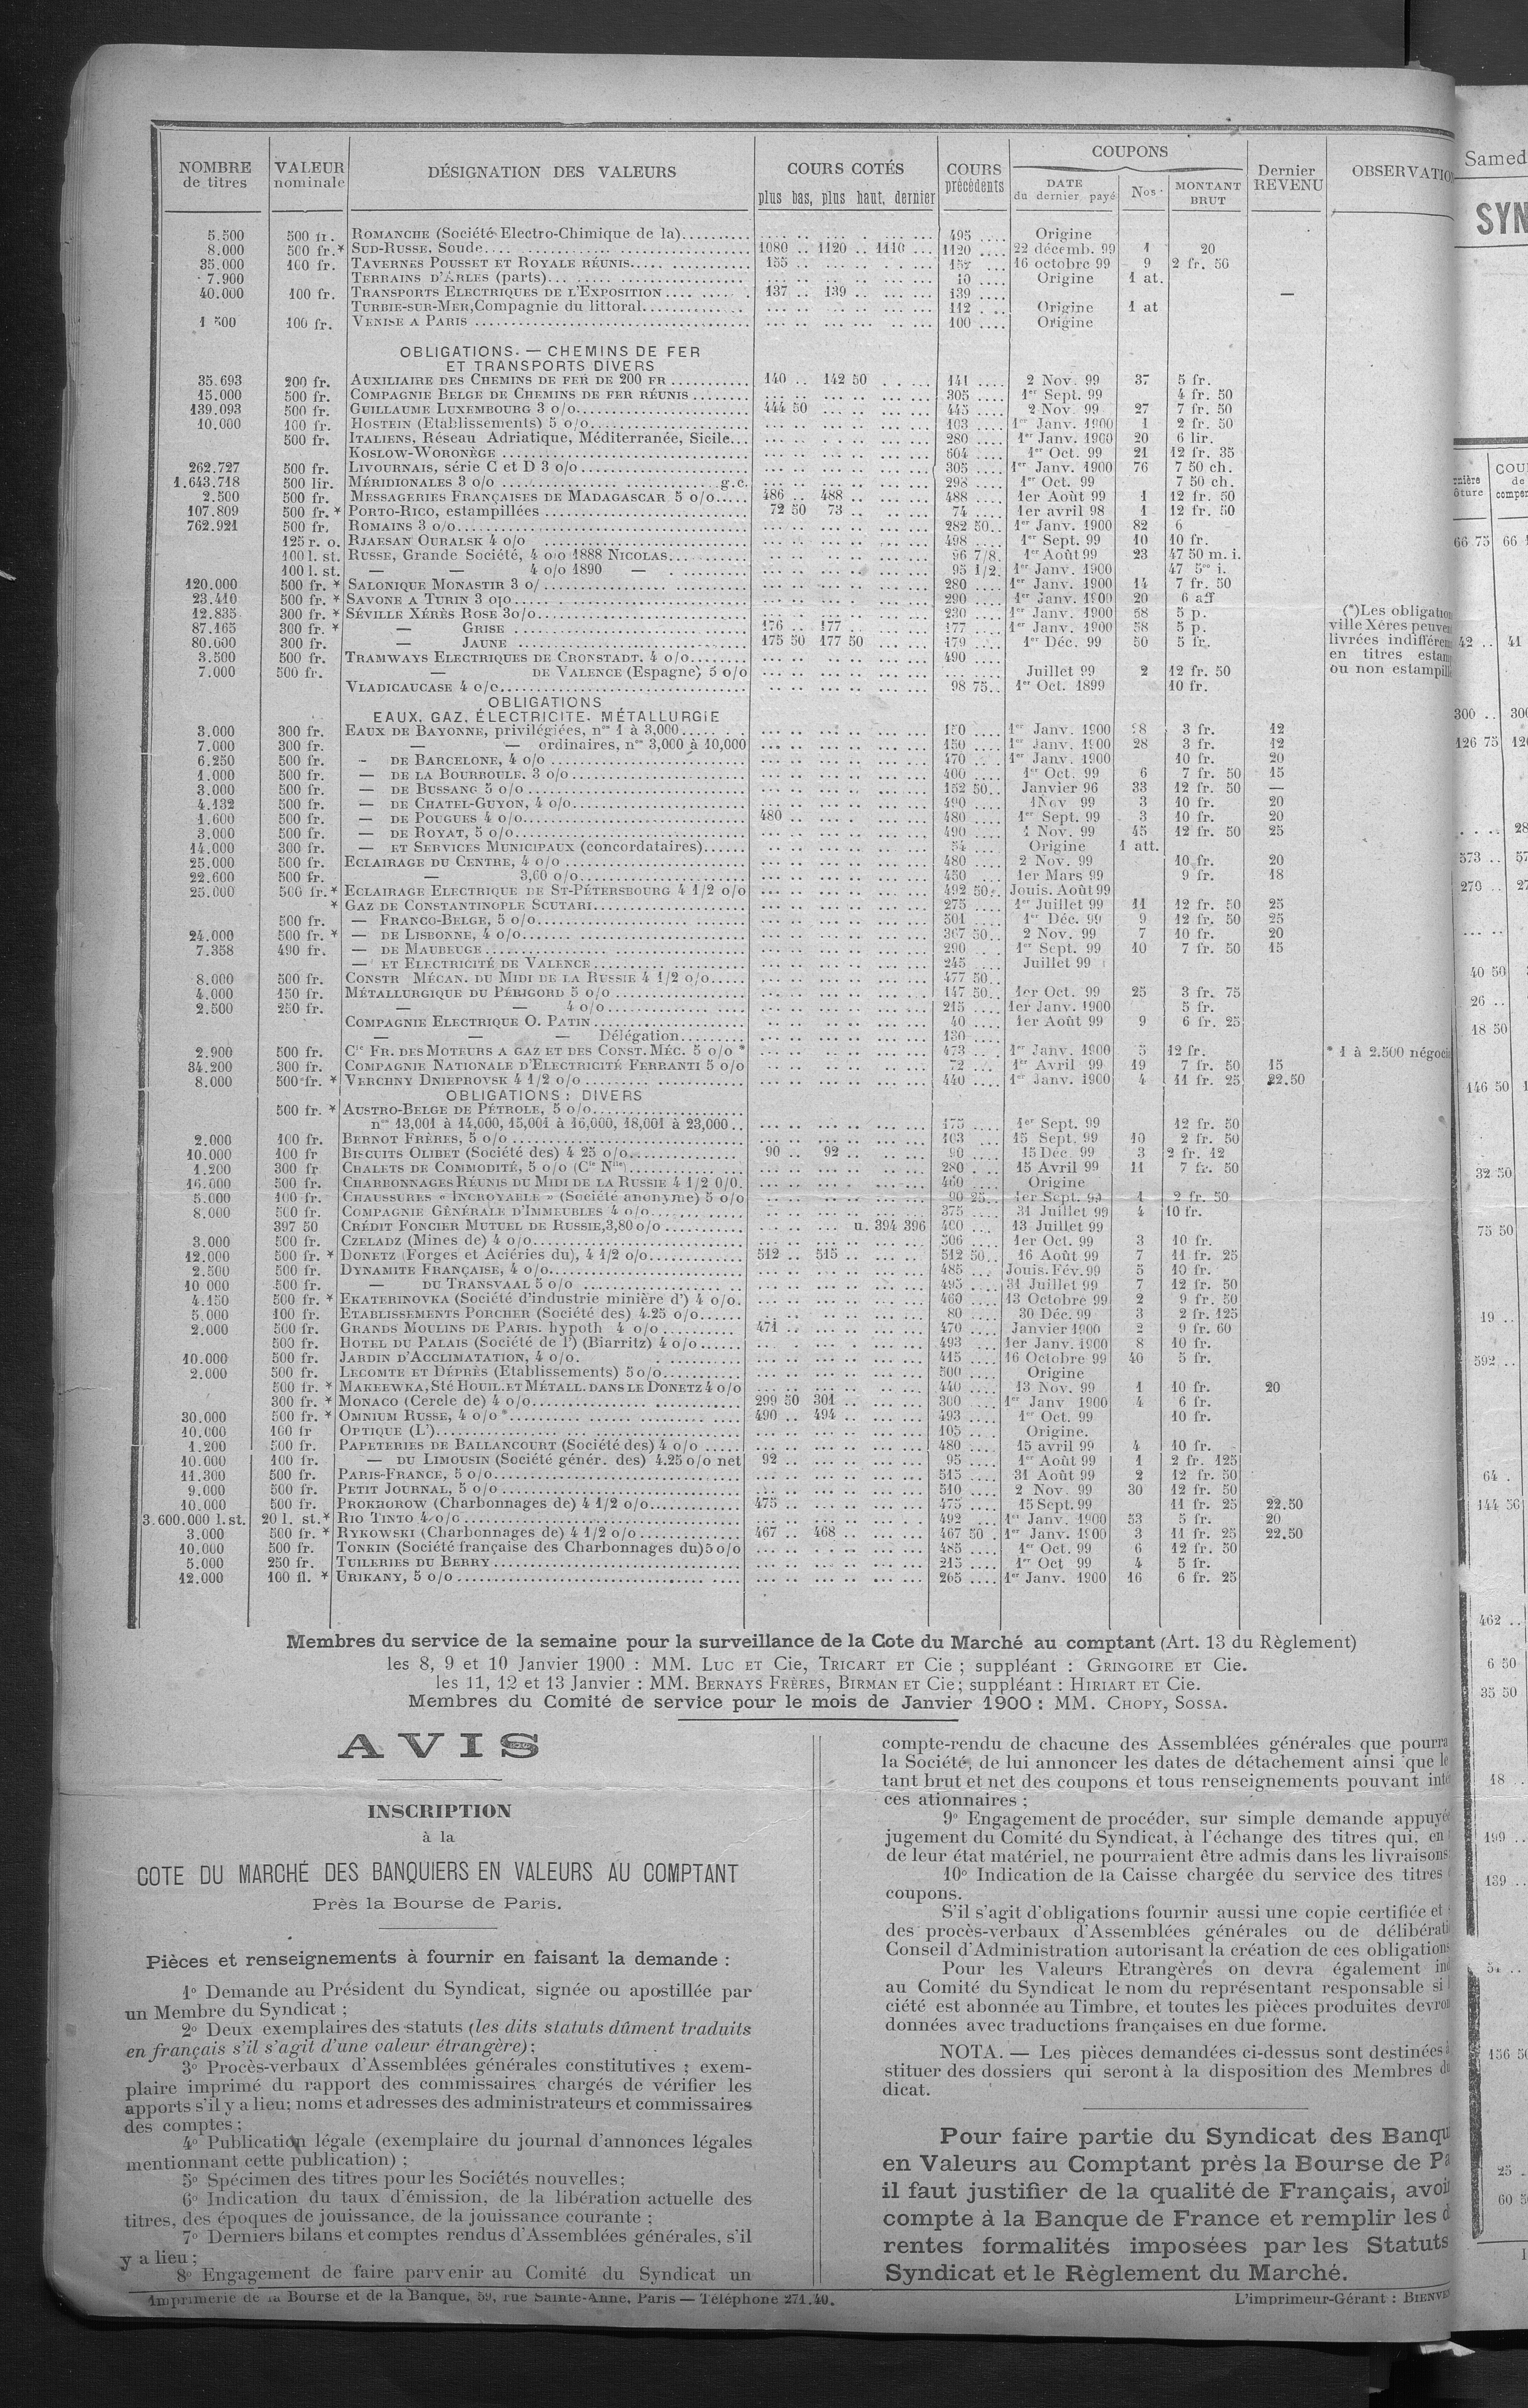 NOMBRE de titres | VALEUR nominale | DÉSIGNATION DES VALEURS | COURS COTÉS plus bas, plus haut, dernier | COURS précédents | COUPONS DATE du dernier payé | Nos | MONTANT BRUT | Dernier REVENU | OBSERVATIO
5.500 500 fr. ROMANCHE (Société Electro-Chimique de la) 495 Origine
8.000 500 fr.* SUD-RUSSE, Soude 1080 .. 1120 .. 1110 1120 22 décemb. 99 1 20
35.000 100 fr. TAVERNES POUSSET ET ROYALE RÉUNIS 155 157 16 octobre 99 9 2 fr. 50
7.900 TERRAINS D'ARLES (parts) 10 Origine 1 at.
40.000 100 fr. TRANSPORTS ELECTRIQUES DE L'EXPOSITION 137 .. 139 139 —
TURBIE-SUR-MER, Compagnie du littoral 112 Origine 1 at
1 500 100 fr. VENISE A PARIS 100 Origine
OBLIGATIONS. — CHEMINS DE FER
ET TRANSPORTS DIVERS
35.693 200 fr. AUXILIAIRE DES CHEMINS DE FER DE 200 FR 140 .. 142 50 141 2 Nov. 99 37 5 fr.
15.000 500 fr. COMPAGNIE BELGE DE CHEMINS DE FER RÉUNIS 305 1er Sept. 99 4 fr. 50
139.093 500 fr. GUILLAUME LUXEMBOURG 3 o/o 444 50 445 2 Nov. 99 27 7 fr. 50
10.000 100 fr. HOSTEIN (Etablissements) 5 o/o 103 1er Janv. 1900 1 2 fr. 50
500 fr. ITALIENS, Réseau Adriatique, Méditerranée, Sicile 280 1er Janv. 1900 20 6 lir.
KOSLOW-WORONÈGE 604 1er Oct. 99 21 12 fr. 35
262.727 500 fr. LIVOURNAIS, série C et D 3 o/o 305 1er Janv. 1900 76 7 50 ch.
1.643.718 500 lir. MÉRIDIONALES 3 o/o g.c. 298 1er Oct. 99 7 50 ch.
2.500 500 fr. MESSAGERIES FRANÇAISES DE MADAGASCAR 5 o/o 486 .. 488 488 1er Août 99 1 12 fr. 50
107.809 500 fr.* PORTO-RICO, estampillées 72 50 73 74 1er avril 98 1 12 fr. 50
762.921 500 fr. ROMAINS 3 o/o 282 50 1er Janv. 1900 82 6
125 r. o. RJAESAN OURALSK 4 o/o 498 1er Sept. 99 10 10 fr.
100 l. st. RUSSE, Grande Société, 4 o/o 1888 NICOLAS 96 7/8 1er Août 99 23 47 50 m. i.
100 l. st. — — 4 o/o 1890 — 95 1/2 1er Janv. 1900 47 i.
120.000 500 fr. * SALONIQUE MONASTIR 3 o/ 280 1er Janv. 1900 14 7 fr. 50
23.410 500 fr. * SAVONE A TURIN 3 o/o 290 1er Janv. 1900 20 6 aff
12.835 300 fr. * SÉVILLE XÉRÈS ROSE 3o/o 230 1er Janv. 1900 58 5 p.
87.165 300 fr. * — GRISE 176 .. 177 177 1er Janv. 1900 58 5 p.
80.600 300 fr. — JAUNE 175 50 177 50 179 1er Déc. 99 50 5 fr.
3.500 500 fr. TRAMWAYS ELECTRIQUES DE CRONSTADT. 4 o/o 490
7.000 500 fr. — DE VALENCE (Espagne) 5 o/o Juillet 99 2 12 fr. 50
VLADICAUCASE 4 o/o 98 75 1er Oct. 1899 10 fr.
(*) Les obligation
ville Xérès peuven
livrées indifférem
en titres estam
ou non estampill
OBLIGATIONS
EAUX, GAZ, ÉLECTRICITE. MÉTALLURGIE
3.000 300 fr. EAUX DE BAYONNE, privilégiées, nos 1 à 3,000 150 1er Janv. 1900 28 3 fr. 12
7.000 300 fr. — — ordinaires, nos 3,000 à 10,000 150 1er Janv. 1900 28 3 fr. 12
6.250 500 fr. — DE BARCELONE, 4 o/o 470 1er Janv. 1900 10 fr. 20
1.000 500 fr. — DE LA BOURBOULE. 3 o/o 400 1er Oct. 99 6 7 fr. 50 15
3.000 500 fr. — DE BUSSANG 5 o/o 152 50 Janvier 96 33 12 fr. 50 —
4.132 500 fr. — DE CHATEL-GUYON, 4 o/o 490 1Nov 99 3 10 fr. 20
1.600 500 fr. — DE POUGUES 4 o/o 480 480 1er Sept. 99 3 10 fr. 20
3.000 500 fr. — DE ROYAT, 5 o/o 490 1 Nov. 99 45 12 fr. 50 25
14.000 300 fr. — ET SERVICES MUNICIPAUX (concordataires) 54 Origine 1 att.
25.000 500 fr. ECLAIRAGE DU CENTRE, 4 o/o 480 2 Nov. 99 10 fr. 20
22.600 500 fr. — 3,60 o/o 450 1er Mars 99 9 fr. 18
25.000 500 fr.* ECLAIRAGE ELECTRIQUE DE ST-PÉTERSBOURG 4 1/2 o/o 492 50 Jouis. Août 99
* GAZ DE CONSTANTINOPLE SCUTARI 275 1er Juillet 99 11 12 fr. 50 25
500 fr. — FRANCO-BELGE, 5 o/o 501 1er Déc. 99 9 12 fr. 50 25
24.000 500 fr. * — DE LISBONNE, 4 o/o 367 50 2 Nov. 99 7 10 fr. 20
7.358 490 fr. — DE MAUBEUGE 290 1er Sept. 99 10 7 fr. 50 15
— ET ELECTRICITÉ DE VALENCE 245 Juillet 99
8.000 500 fr. CONSTR MÉCAN. DU MIDI DE LA RUSSIE 4 1/2 o/o 477 50
4.000 150 fr. MÉTALLURGIQUE DU PÉRIGORD 5 o/o 147 50 1er Oct. 99 25 3 fr. 75
2.500 250 fr. — — 4 o/o 215 1er Janv. 1900 5 fr.
COMPAGNIE ELECTRIQUE O. PATIN 40 1er Août 99 9 6 fr. 25
— — — Délégation 130
2.900 500 fr. Cie FR. DES MOTEURS A GAZ ET DES CONST. MÉC. 5 o/o * 473 1er Janv. 1900 5 12 fr. * 1 à 2.500 négoci
34.200 300 fr. COMPAGNIE NATIONALE D'ELECTRICITÉ FERRANTI 5 o/o 72 1er Avril 99 19 7 fr. 50 15
8.000 500 fr. * VERCHNY DNIEPROVSK 4 1/2 o/o 440 1er Janv. 1900 4 11 fr. 25 22.50
OBLIGATIONS : DIVERS
500 fr. * AUSTRO-BELGE DE PÉTROLE, 5 o/o
nos 13,001 à 14,000, 15,001 à 16,000, 18,001 à 23,000 475 1er Sept. 99 12 fr. 50
2.000 100 fr. BERNOT FRÈRES, 5 o/o 103 15 Sept. 99 10 2 fr. 50
10.000 100 fr BISCUITS OLIBET (Société des) 4 25 o/o 90 .. 92 90 15 Déc. 99 3 2 fr. 12
1.200 300 fr. CHALETS DE COMMODITÉ, 5 o/o (Cie Nlle) 280 15 Avril 99 11 7 fr. 50
16.000 500 fr. CHARBONNAGES RÉUNIS DU MIDI DE LA RUSSIE 4 1/2 0/0 460 Origine
5.000 100 fr. CHAUSSURES « INCROYABLE » (Société anonyme) 5 o/o 90 25 1er Sept. 99 1 2 fr. 50
8.000 500 fr. COMPAGNIE GÉNÉRALE D'IMMEUBLES 4 o/o 375 31 Juillet 99 4 10 fr.
397 50 CRÉDIT FONCIER MUTUEL DE RUSSIE, 3,80 o/o u. 394 396 400 13 Juillet 99
3.000 500 fr. CZELADZ (Mines de) 4 o/o 506 1er Oct. 99 3 10 fr.
12.000 500 fr. * DONETZ (Forges et Aciéries du), 4 1/2 o/o 512 .. 515 512 50 16 Août 99 7 11 fr. 25
2.500 500 fr. DYNAMITE FRANÇAISE, 4 o/o 485 Jouis. Fév. 99 5 10 fr.
10 000 500 fr. — DU TRANSVAAL 5 o/o 495 31 Juillet 99 7 12 fr. 50
4.150 500 fr. * EKATERINOVKA (Société d'industrie minière d') 4 o/o. 460 13 Octobre 99 2 9 fr. 50
5.000 100 fr. ETABLISSEMENTS PORCHER (Société des) 4.25 o/o 80 30 Déc. 99 3 2 fr. 125
2.000 500 fr. GRANDS MOULINS DE PARIS. hypoth 4 o/o 471 470 Janvier 1900 2 9 fr. 60
500 fr. HOTEL DU PALAIS (Société de l') (Biarritz) 4 o/o 493 1er Janv. 1900 8 10 fr.
10.000 500 fr. JARDIN D'ACCLIMATATION, 4 o/o. 415 16 Octobre 99 40 5 fr.
2.000 500 fr. LECOMTE ET DÉPRÈS (Etablissements) 5 o/o 500 Origine
500 fr. * MAKEEWKA, Sté HOUIL. ET MÉTALL. DANS LE DONETZ 4 o/o 440 13 Nov. 99 1 10 fr. 20
300 fr. * MONACO (Cercle de) 4 o/o 299 50 301 300 1er Janv 1900 4 6 fr.
30.000 500 fr. * OMNIUM RUSSE, 4 o/o * 490 .. 494 493 1er Oct. 99 10 fr.
10.000 100 fr OPTIQUE (L') 105 Origine.
1.200 500 fr. PAPETERIES DE BALLANCOURT (Société des) 4 o/o 480 15 avril 99 4 10 fr.
10.000 100 fr. — DU LIMOUSIN (Société génér. des) 4.25 o/o net 92 95 1er Août 99 1 2 fr. 125
11.300 500 fr. PARIS-FRANCE, 5 o/o 515 31 Août 99 2 12 fr. 50
9.000 500 fr. PETIT JOURNAL, 5 o/o 510 2 Nov. 99 30 12 fr. 50
10.000 500 fr. PROKHOROW (Charbonnages de) 4 1/2 o/o 475 475 15 Sept. 99 11 fr. 25 22.50
3.600.000 l.st. 20 l. st.* RIO TINTO 4 o/o 492 1er Janv. 1900 53 5 fr. 20
3.000 500 fr. * RYKOWSKI (Charbonnages de) 4 1/2 o/o 467 .. 468 467 50 1er Janv. 1900 3 11 fr. 25 22.50
10.000 500 fr. TONKIN (Société française des Charbonnages du) 5 o/o 485 1er Oct. 99 6 12 fr. 50
5.000 250 fr. TUILERIES DU BERRY 215 1er Oct 99 4 5 fr.
12.000 100 fl. * URIKANY, 5 o/o 265 1er Janv. 1900 16 6 fr. 25
Membres du service de la semaine pour la surveillance de la Cote du Marché au comptant (Art. 13 du Règlement)
les 8, 9 et 10 Janvier 1900 : MM. LUC ET Cie, TRICART ET Cie ; suppléant : GRINGOIRE ET Cie.
les 11, 12 et 13 Janvier : MM. BERNAYS FRÈRES, BIRMAN ET Cie ; suppléant : HIRIART ET Cie.
Membres du Comité de service pour le mois de Janvier 1900 : MM. CHOPY, SOSSA.
AVIS
INSCRIPTION
à la
COTE DU MARCHÉ DES BANQUIERS EN VALEURS AU COMPTANT
Près la Bourse de Paris.
Pièces et renseignements à fournir en faisant la demande :
1º Demande au Président du Syndicat, signée ou apostillée par
un Membre du Syndicat ;
2º Deux exemplaires des statuts (les dits statuts dûment traduits
en français s'il s'agit d'une valeur étrangère) ;
3º Procès-verbaux d'Assemblées générales constitutives ; exem-
plaire imprimé du rapport des commissaires chargés de vérifier les
apports s'il y a lieu; noms et adresses des administrateurs et commissaires
des comptes ;
4º Publication légale (exemplaire du journal d'annonces légales
mentionnant cette publication) ;
5º Spécimen des titres pour les Sociétés nouvelles ;
6º Indication du taux d'émission, de la libération actuelle des
titres, des époques de jouissance, de la jouissance courante ;
7º Derniers bilans et comptes rendus d'Assemblées générales, s'il
y a lieu ;
8º Engagement de faire parvenir au Comité du Syndicat un
compte-rendu de chacune des Assemblées générales que pourra
la Société, de lui annoncer les dates de détachement ainsi que le
tant brut et net des coupons et tous renseignements pouvant inté
ces ationnaires ;
9º Engagement de procéder, sur simple demande appuyée
jugement du Comité du Syndicat, à l'échange des titres qui, en
de leur état matériel, ne pourraient être admis dans les livraisons
10º Indication de la Caisse chargée du service des titres
coupons.
S'il s'agit d'obligations fournir aussi une copie certifiée et
des procès-verbaux d'Assemblées générales ou de délibérati
Conseil d'Administration autorisant la création de ces obligations
Pour les Valeurs Etrangères on devra également ind
au Comité du Syndicat le nom du représentant responsable si l
ciété est abonnée au Timbre, et toutes les pièces produites devron
données avec traductions françaises en due forme.
NOTA. — Les pièces demandées ci-dessus sont destinées à
stituer des dossiers qui seront à la disposition des Membres du
dicat.
Pour faire partie du Syndicat des Banqu
en Valeurs au Comptant près la Bourse de Pa
il faut justifier de la qualité de Français, avoir
compte à la Banque de France et remplir les d
rentes formalités imposées par les Statuts
Syndicat et le Règlement du Marché.
Imprimerie de la Bourse et de la Banque, 59, rue Sainte-Anne, Paris — Téléphone 271.40.
L'imprimeur-Gérant : BIENVE
Samed
SYN
nière
ôture
COU
de
compen
66 75 66
42 .. 41
300 .. 300
126 75
28
573 .. 57
270 .. 27
40 50
26 ..
18 50
146 50
32 50
75 50
19 ..
592 ..
64 .
144 50
462 ..
6 50
35 50
18 ..
199 ..
139 ..
51 ..
156 50
25 ..
60 50